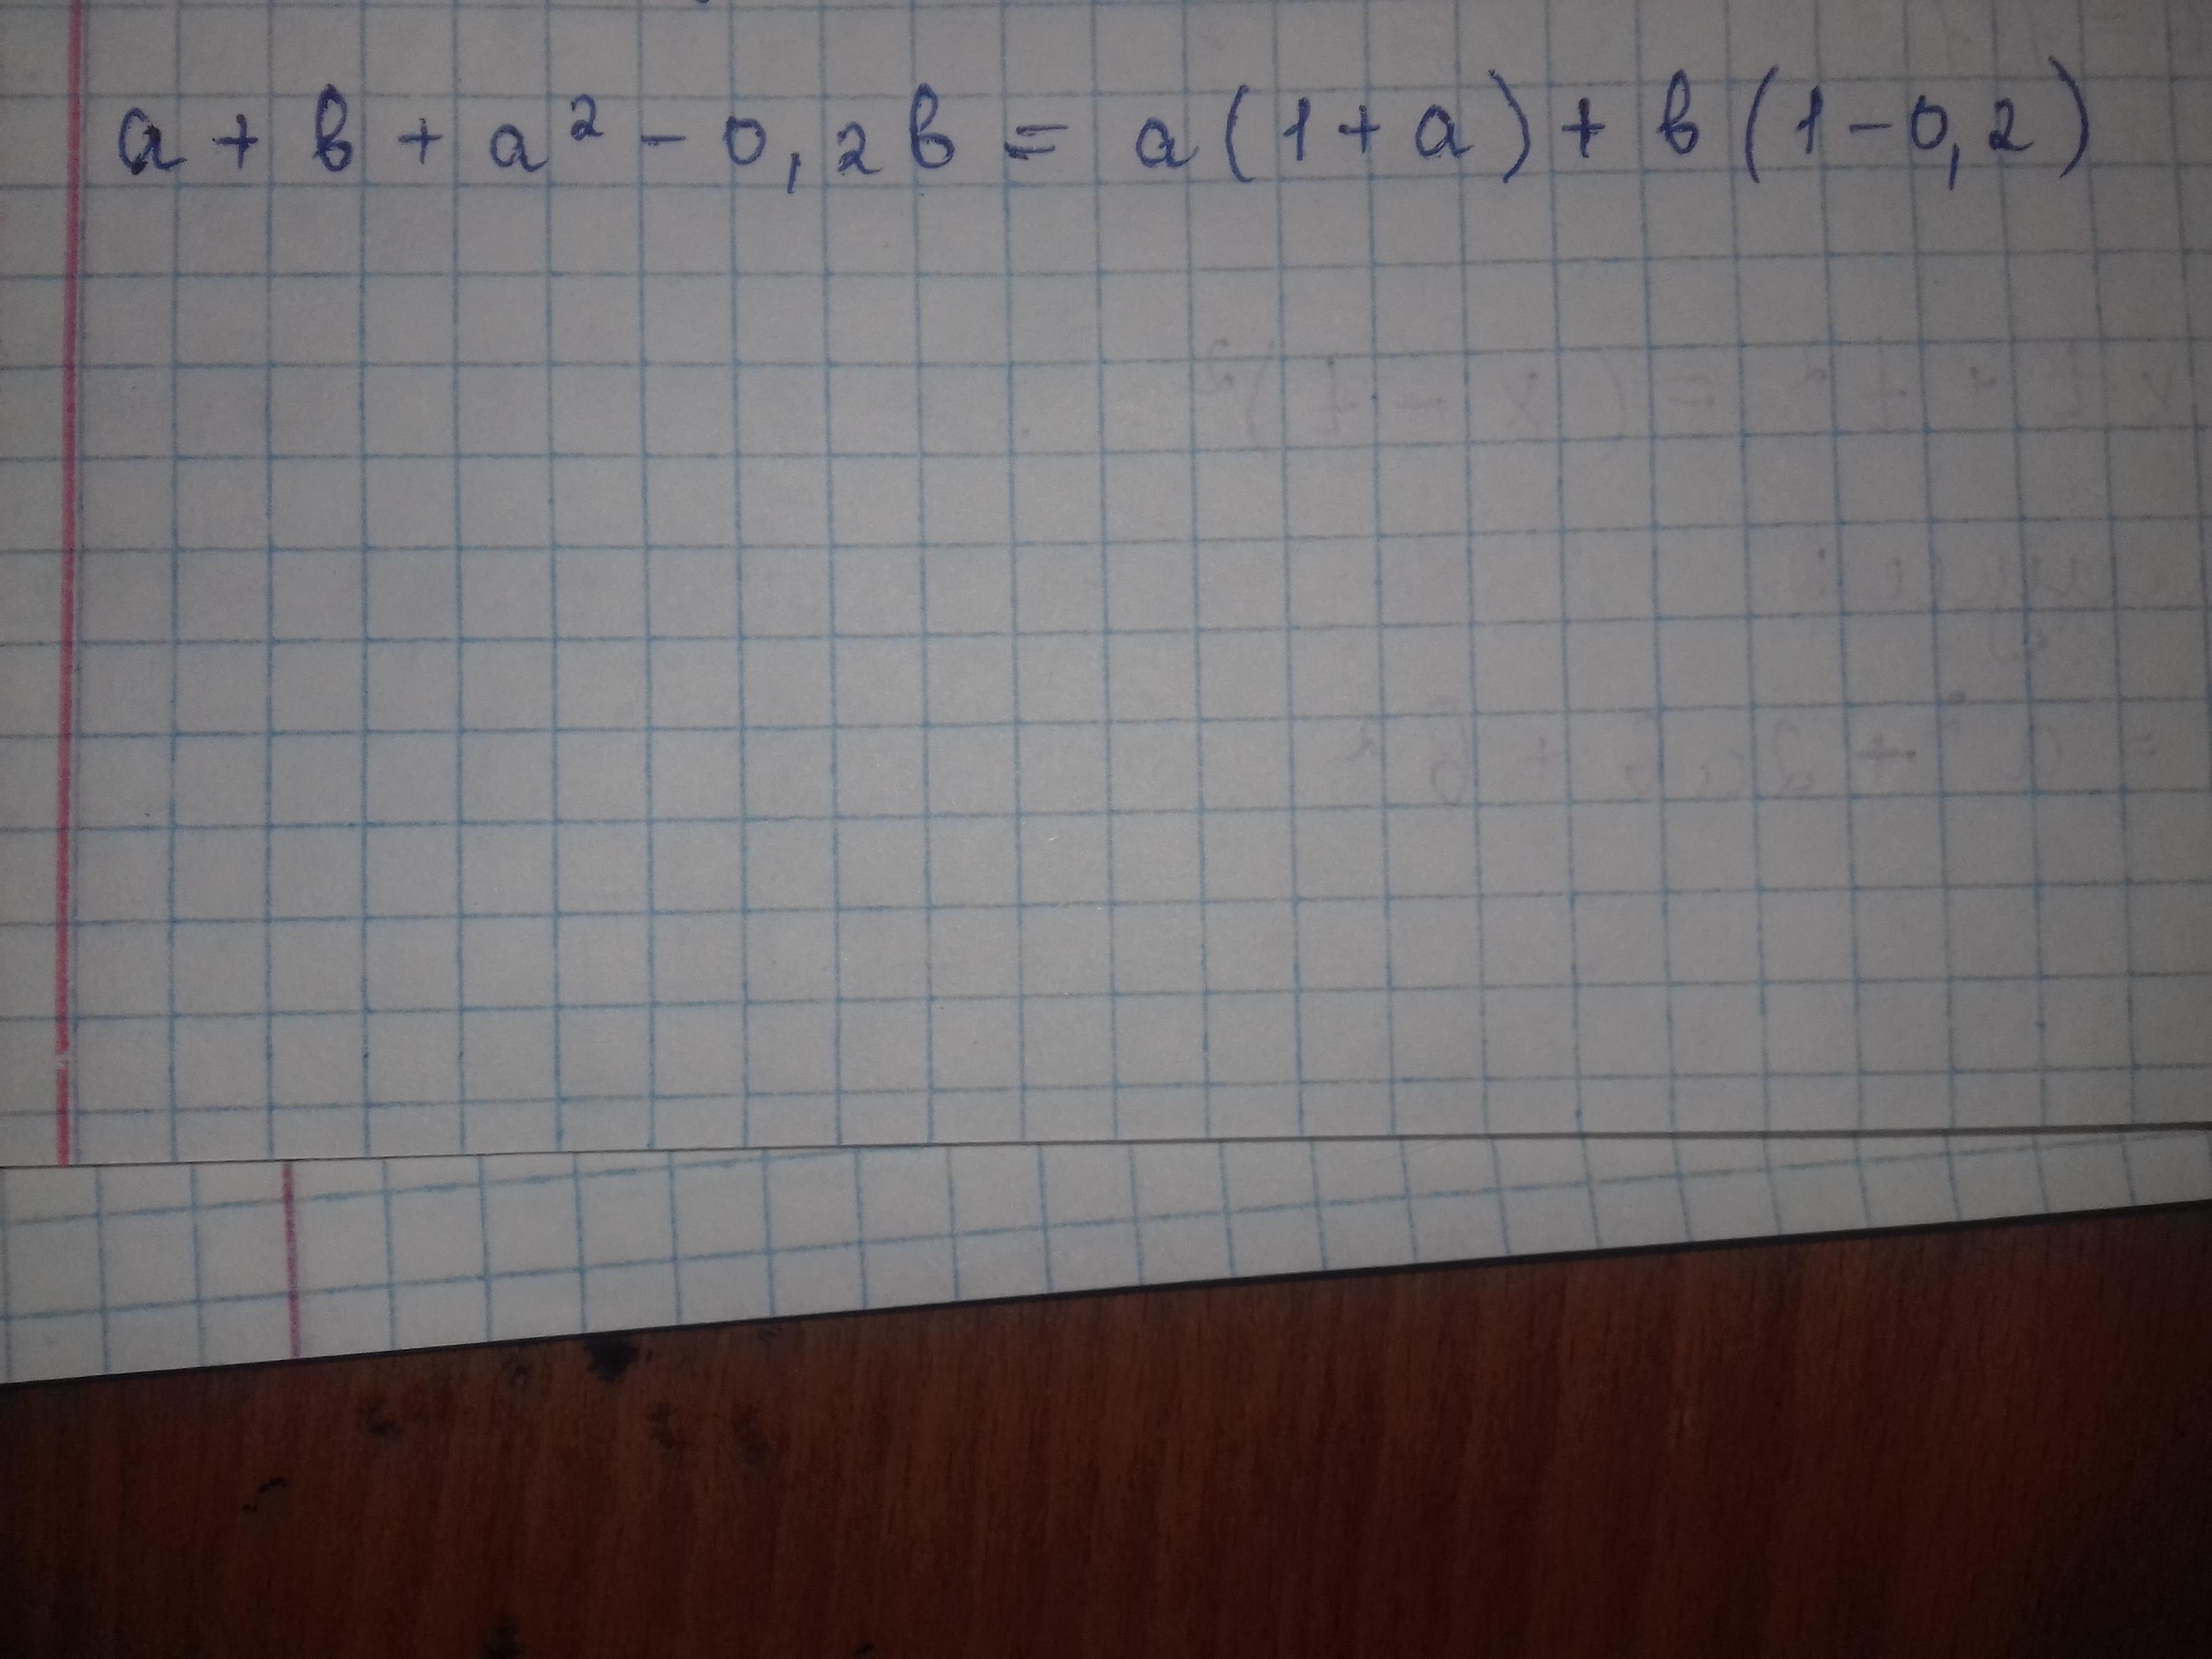 a + b + a² - 0,2b = a(1 + a) + b(1 - 0,2)